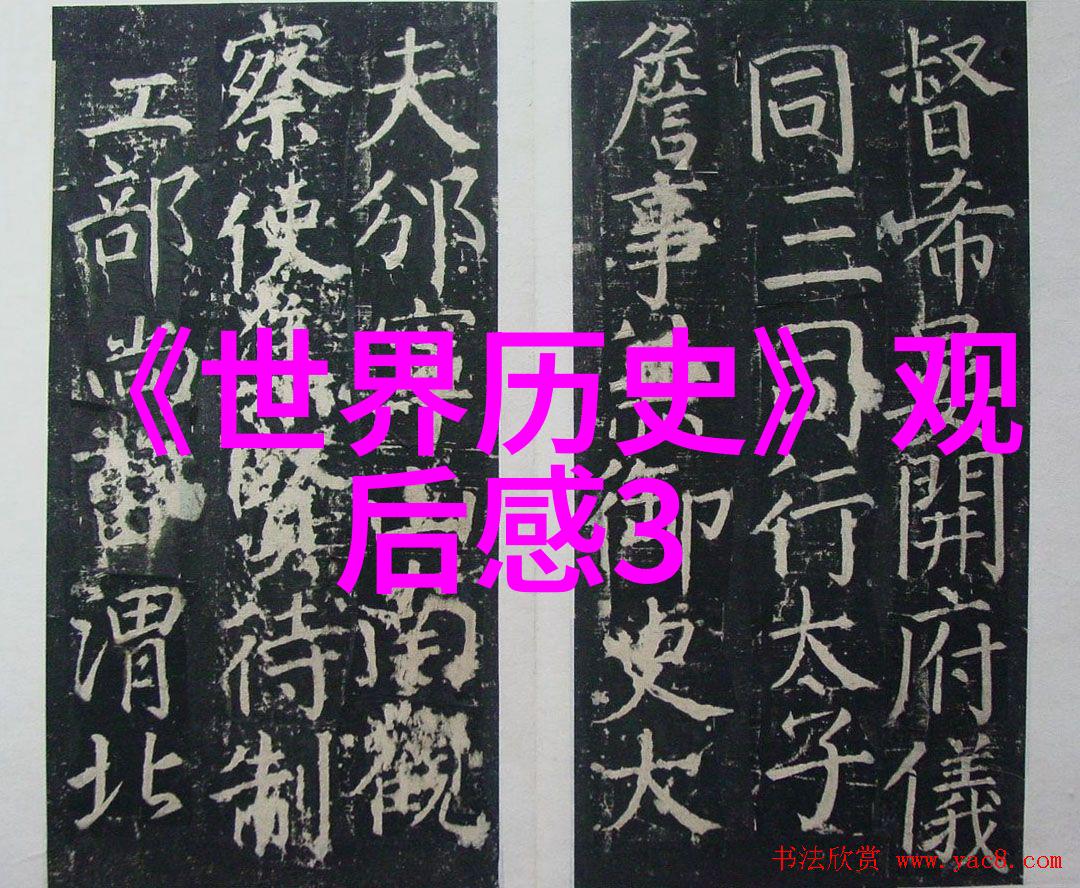 《世界历史》观
后感3
督希開府儀
同三司行太子
詹事兼御史大
夫邠寧山南觀
察使集賢待制
工部尚書渭北
书法欣赏 www.yac8.com